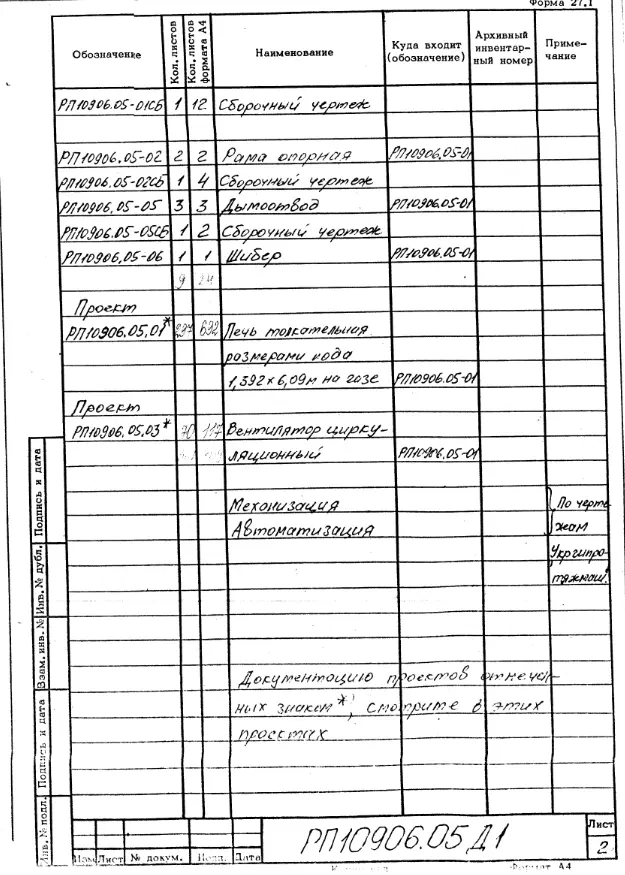 Форма 27.1
Обозначение Кол. листов Кол. листов формата А4 Наименование Куда входит (обозначение) Архивный инвентар- ный номер Приме- чание
РП10906.05-01СБ 1 12 Сборочный чертеж
РП10906.05-02 2 2 Рама опорная РП10906.05-01
РП10906.05-02СБ 1 4 Сборочный чертеж
РП10906.05-05 3 3 Дымоотвод РП10906.05-01
РП10906.05-05СБ 1 2 Сборочный чертеж
РП10906.05-06 1 1 Шибер РП10906.05-01
9 24
Проект
РП10906.05.01* 692 Печь толкательная
размерами пода
1,392 х 6,09м на газе РП10906.05-01
Проект
РП10906.05.03* Вентилятор цирку-
ляционный РП10906.05-01
Механизация По черте-
Автоматизация жам
Укргипро-
тяжмаш.
Документацию проектов отмечен-
ных знаком *), смотрите в этих
проектах
Инв. № подл. Подпись и дата Взам. инв. № Инв. № дубл. Подпись и дата
РП10906.05Д1
Лист
2
Изм Лист № докум. Подп. Дата
Формат А4